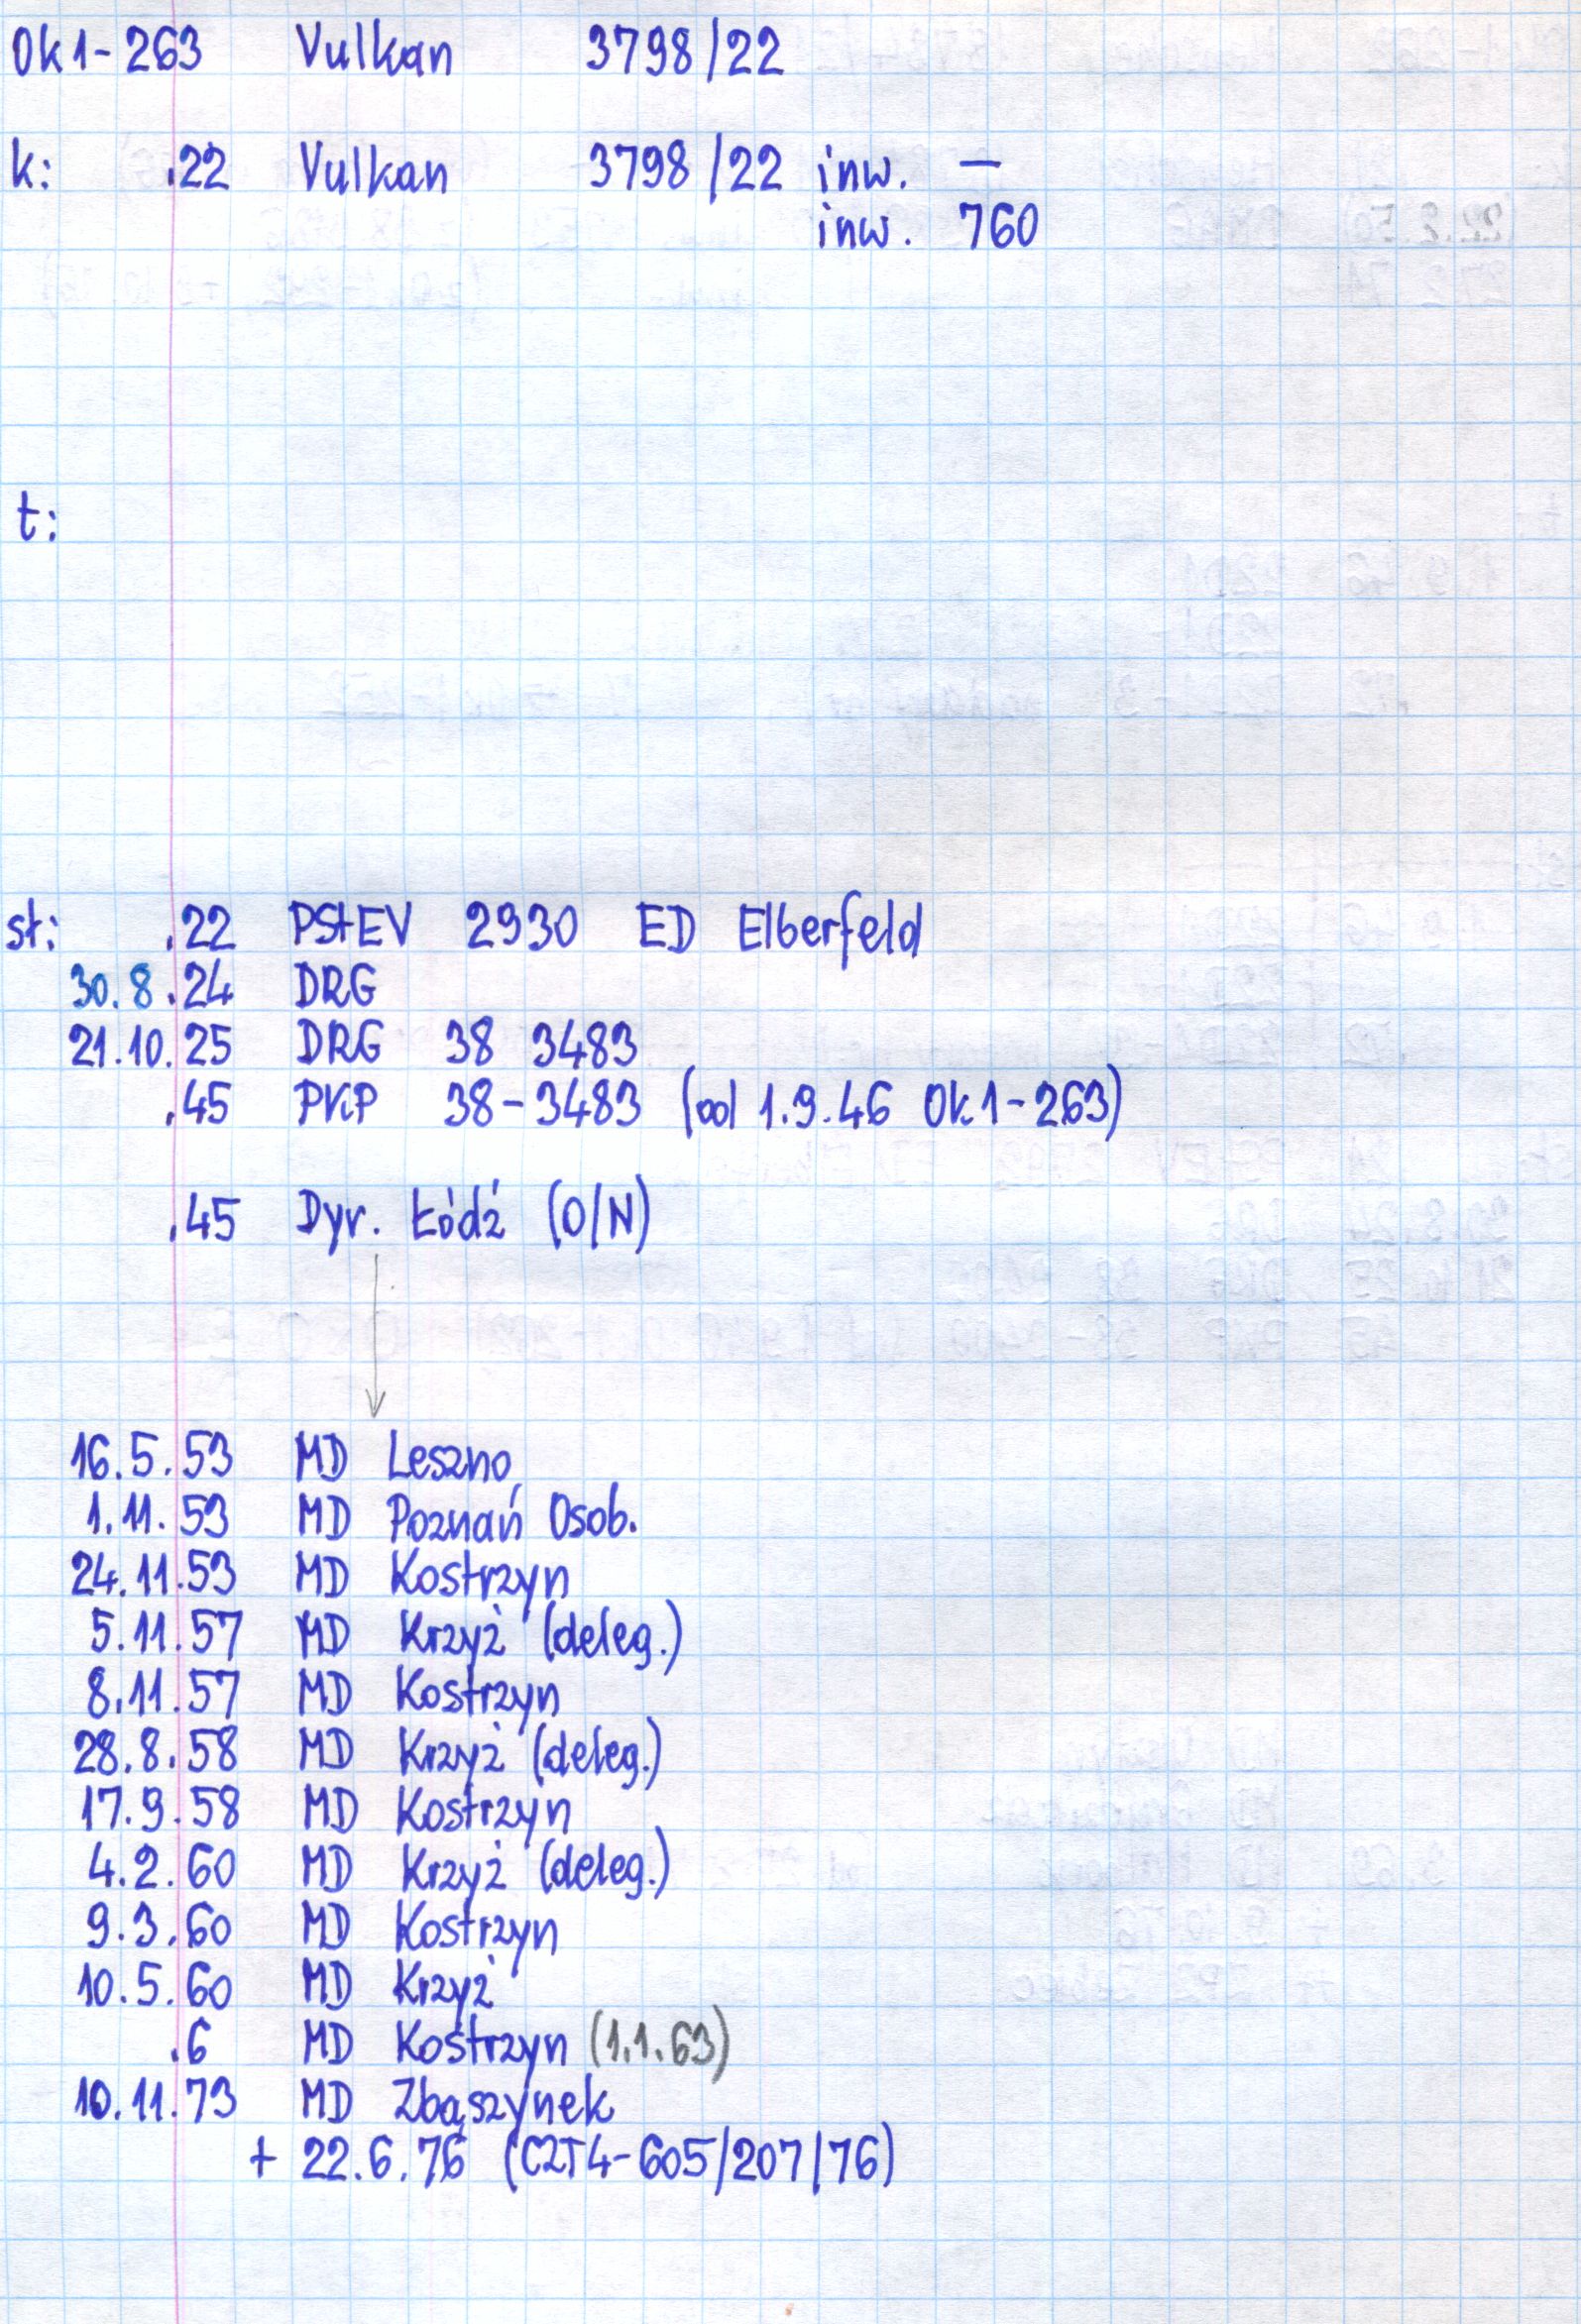 Ok1-263 Vulkan 3798/22
k: .22 Vulkan 3798/22 inw. —
inw. 760
t:
st: .22 PStEV 2930 ED Elberfeld
30.8.24 DRG
21.10.25 DRG 38 3483
.45 PKP 38-3483 (od 1.9.46 Ok1-263)
.45 Dyr. Łódź (O/N)
16.5.53 MD Leszno
1.11.53 MD Poznań Osob.
24.11.53 MD Kostrzyn
5.11.57 MD Krzyż (deleg.)
8.11.57 MD Kostrzyn
28.8.58 MD Krzyż (deleg.)
17.9.58 MD Kostrzyn
4.2.60 MD Krzyż (deleg.)
9.3.60 MD Kostrzyn
10.5.60 MD Krzyż
.6 MD Kostrzyn (1.1.63)
10.11.73 MD Zbąszynek
+ 22.6.76 (C2T4-605/207/76)